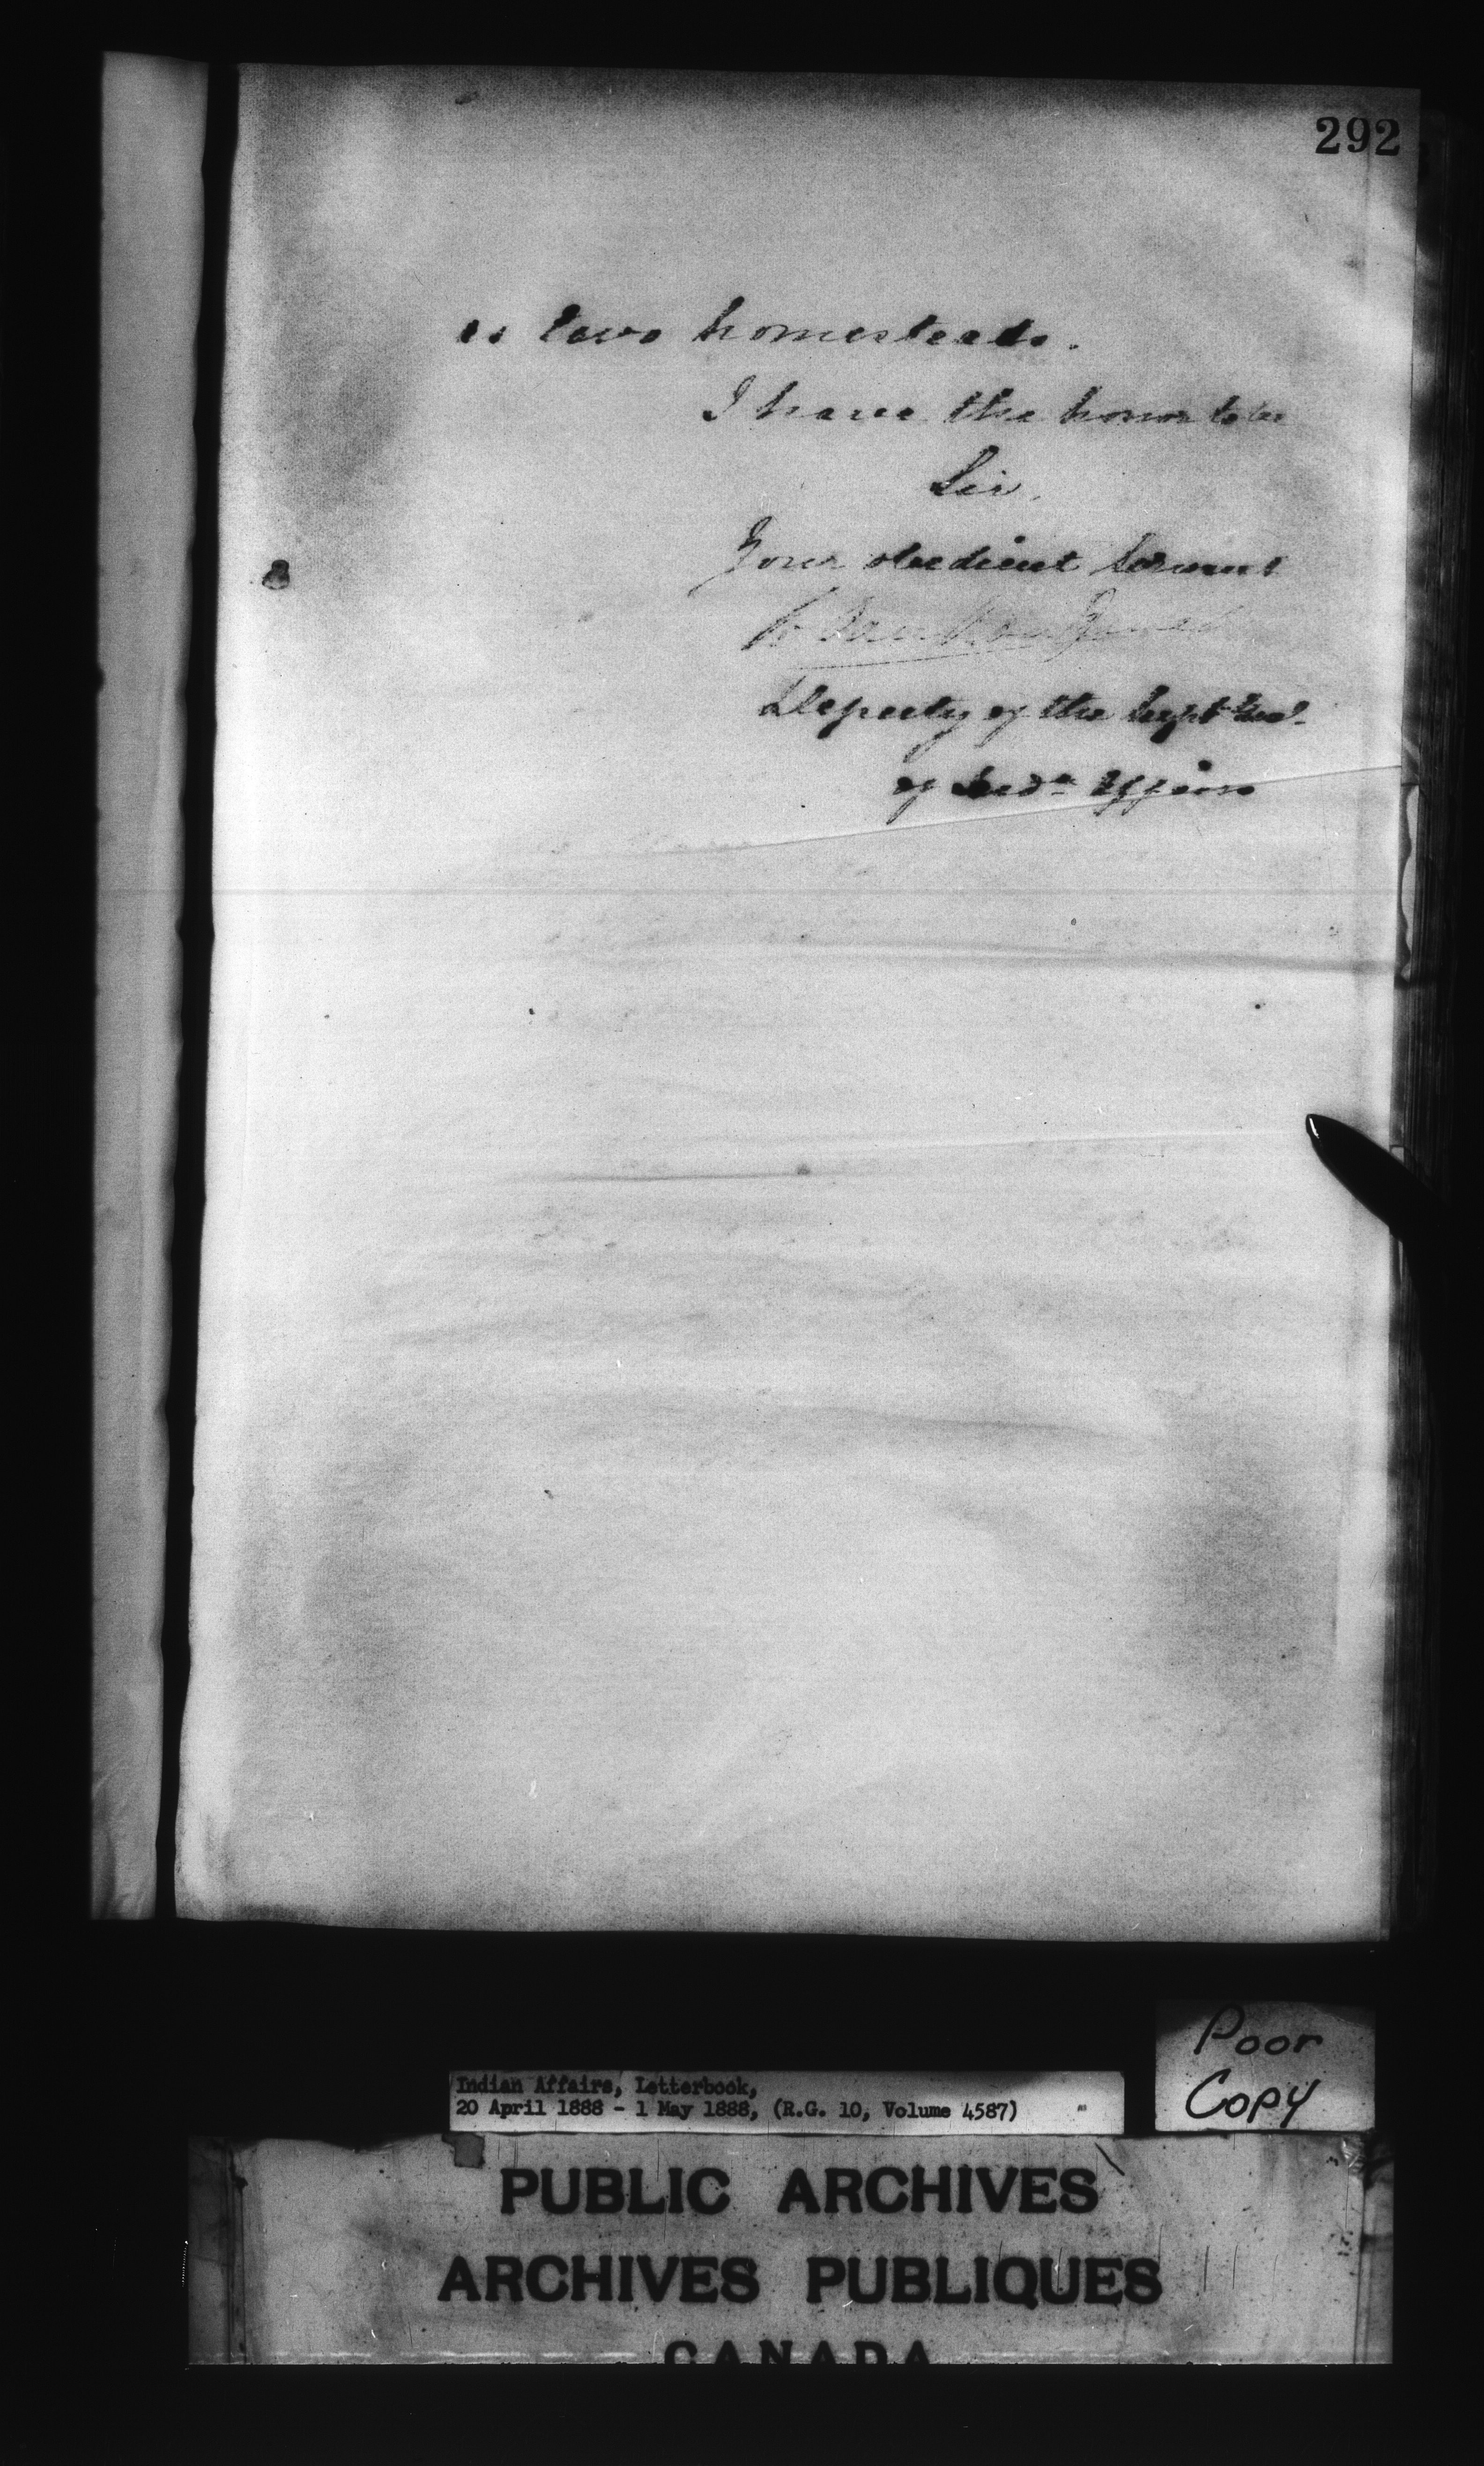 292
as two homesteads.
I have the honor to be
Sir,
Your obedient Servant
Deputy of the Supt Genl.
of Indn Affairs
Poor
Copy
Indian Affairs, Letterbook,
20 April 1888 - 1 May 1888, (R.G. 10, Volume 4587)
PUBLIC ARCHIVES
ARCHIVES PUBLIQUES
CANADA